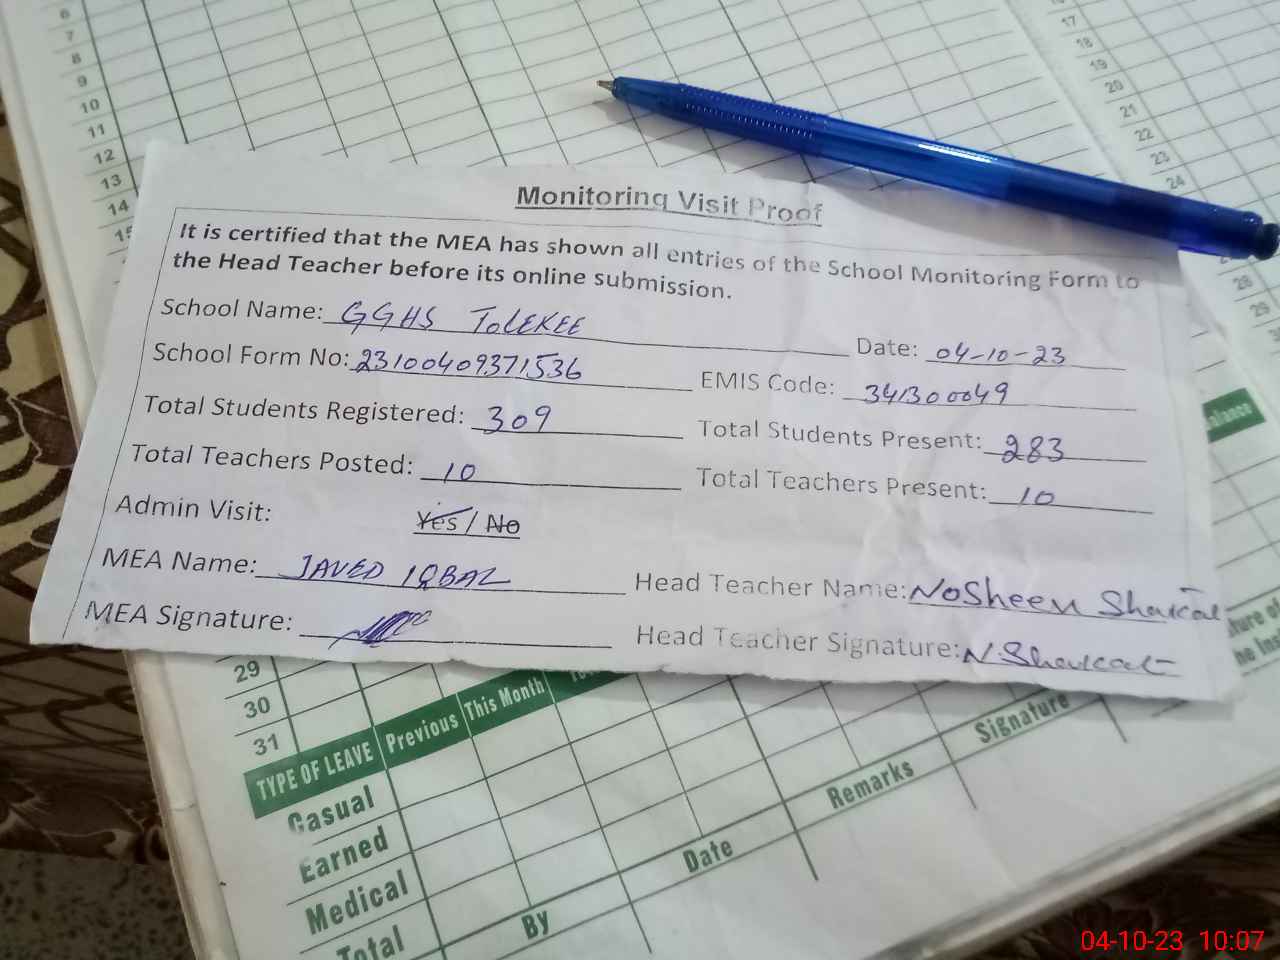 6
7
8
9
10
11
12
13
14
15
16
17
18
19
20
21
22
23
24
28
29
30
Monitoring Visit Proof
It is certified that the MEA has shown all entries of the School Monitoring Form to
the Head Teacher before its online submission.
School Name: GGHS TOLEKEE Date: 04-10-23
School Form No: 23100409371536 EMIS Code: 341300049
Total Students Registered: 309 Total Students Present: 283
Total Teachers Posted: 10 Total Teachers Present: 10
Admin Visit: Yes / No
MEA Name: JAVED IQBAL Head Teacher Name: NoSheen Shaukat
MEA Signature: Head Teacher Signature: N.Shaukat
29
30
31
TYPE OF LEAVE Previous This Month
Casual
Earned
Medical
Total
By Date Remarks Signature
04-10-23 10:07